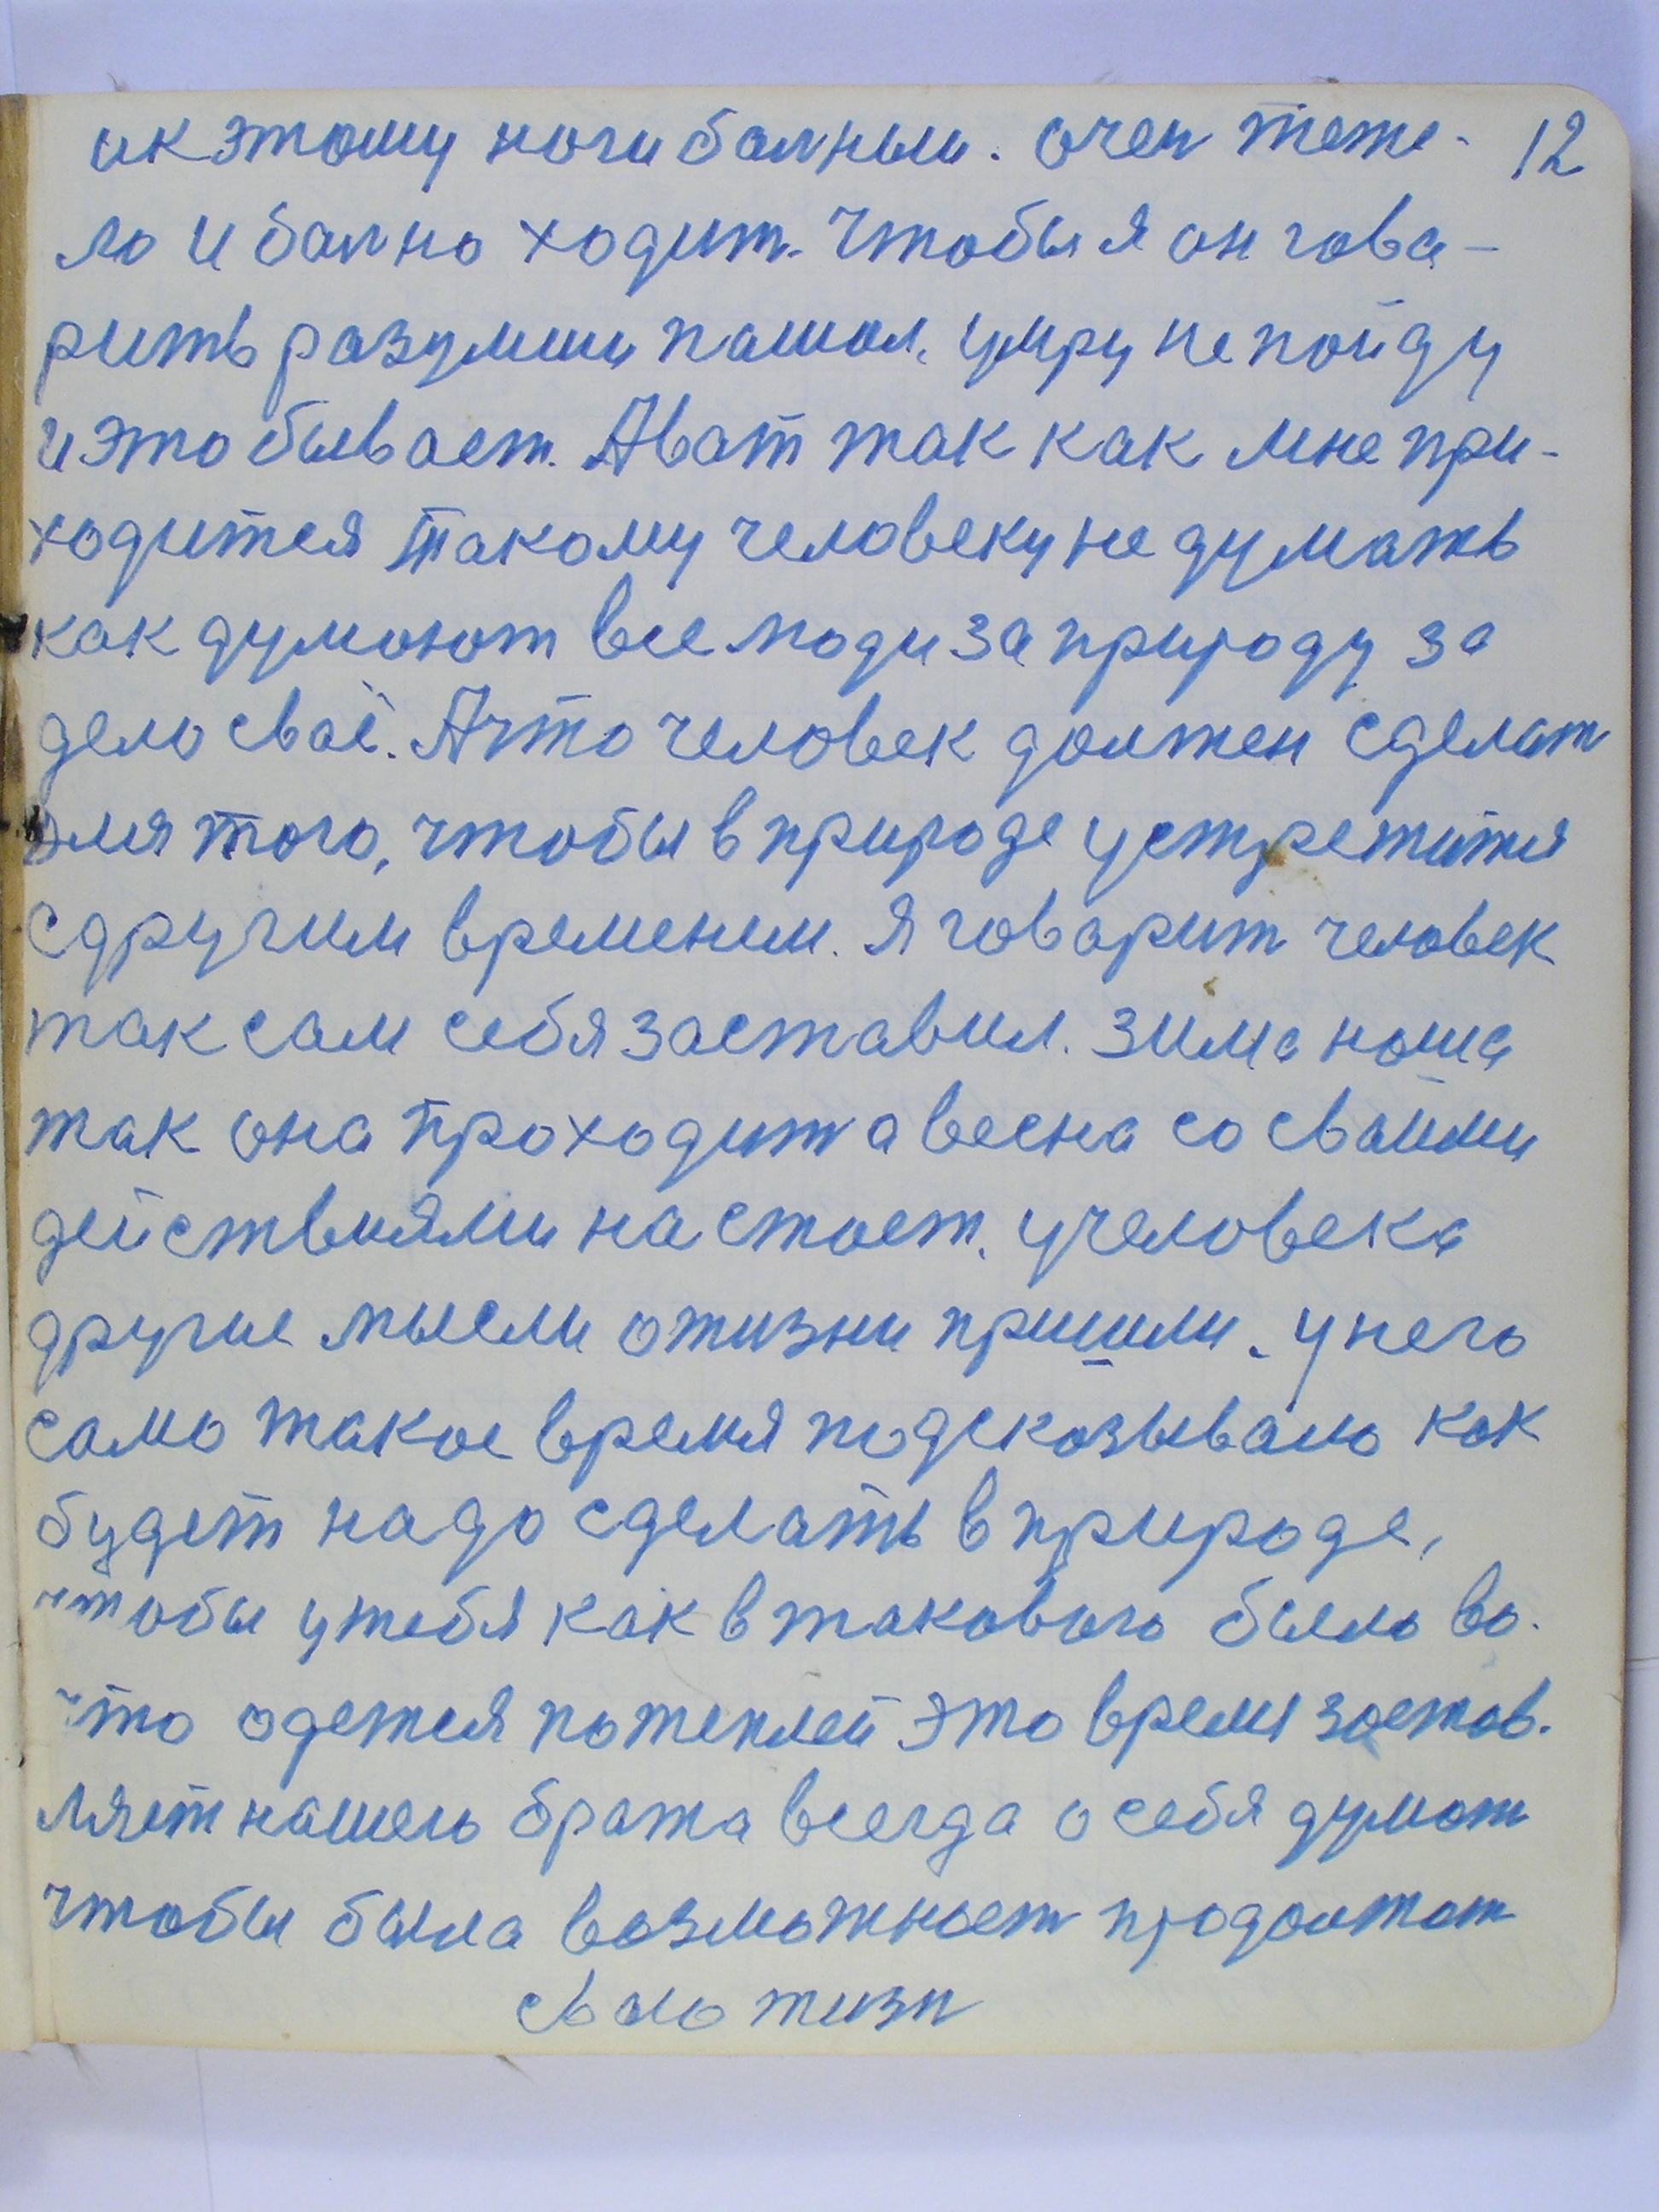 ик этому ноги балныи. очен теже- 12
ло и бално ходит. Чтобы я он гова-
рить разумши пашол. умру не пойду
и это бывает. А ват так как мне при-
ходится такому человеку не думать
как думоют все люди за природу за
дело сваё. А что человек должен сделат
для того, чтобы в природе устретится
с другим временем. Я говарит человек
так сам себя заставил. Зима наша
так она проходит а весна со сваими
действиями настоет. у человека
другие мысли о жизни пришли. у него
само такое время подсказывало как
будет надо сделать в природе,
чтобы у тебя как в такового было во.
что одется потеплей это время застав.
ляет нашего брата всегда о себя думат
чтобы была возможност продолжат
сваю жизн